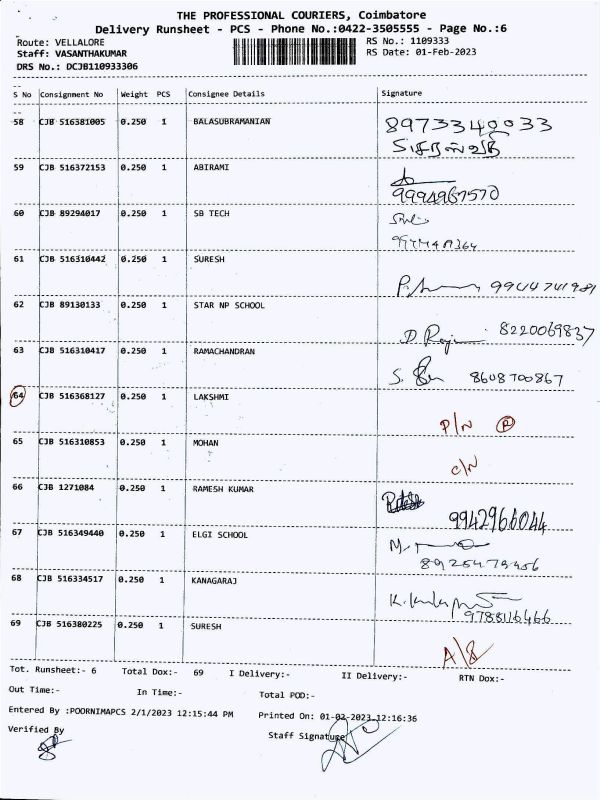 THE PROFESSIONAL COURIERS, Coimbatore
Delivery Runsheet - PCS - Phone No.:0422-3505555 - Page No.:6
Route: VELLALORE RS No.: 1109333
Staff: VASANTHAKUMAR RS Date: 01-Feb-2023
DRS No.: DCJB110933306
S No Consignment No Weight PCS Consignee Details Signature
58 CJB 516381005 0.250 1 BALASUBRAMANIAN 8973340033
59 CJB 516372153 0.250 1 ABIRAMI
9994967570
60 CJB 89294017 0.250 1 SB TECH
61 CJB 516310442 0.250 1 SURESH
62 CJB 89130133 0.250 1 STAR NP SCHOOL
8220069837
63 CJB 516310417 0.250 1 RAMACHANDRAN
8608700867
64 CJB 516368127 0.250 1 LAKSHMI
P/N R
65 CJB 516310853 0.250 1 MOHAN
C/N
66 CJB 1271084 0.250 1 RAMESH KUMAR
9942966044
67 CJB 516349440 0.250 1 ELGI SCHOOL
68 CJB 516334517 0.250 1 KANAGARAJ
9788116466
69 CJB 516380225 0.250 1 SURESH
Tot. Runsheet:- 6 Total Dox:- 69 I Delivery:- II Delivery:- RTN Dox:-
Out Time:- In Time:- Total POD:-
Entered By :POORNIMAPCS 2/1/2023 12:15:44 PM Printed On: 01-02-2023 12:16:36
Verified By Staff Signature